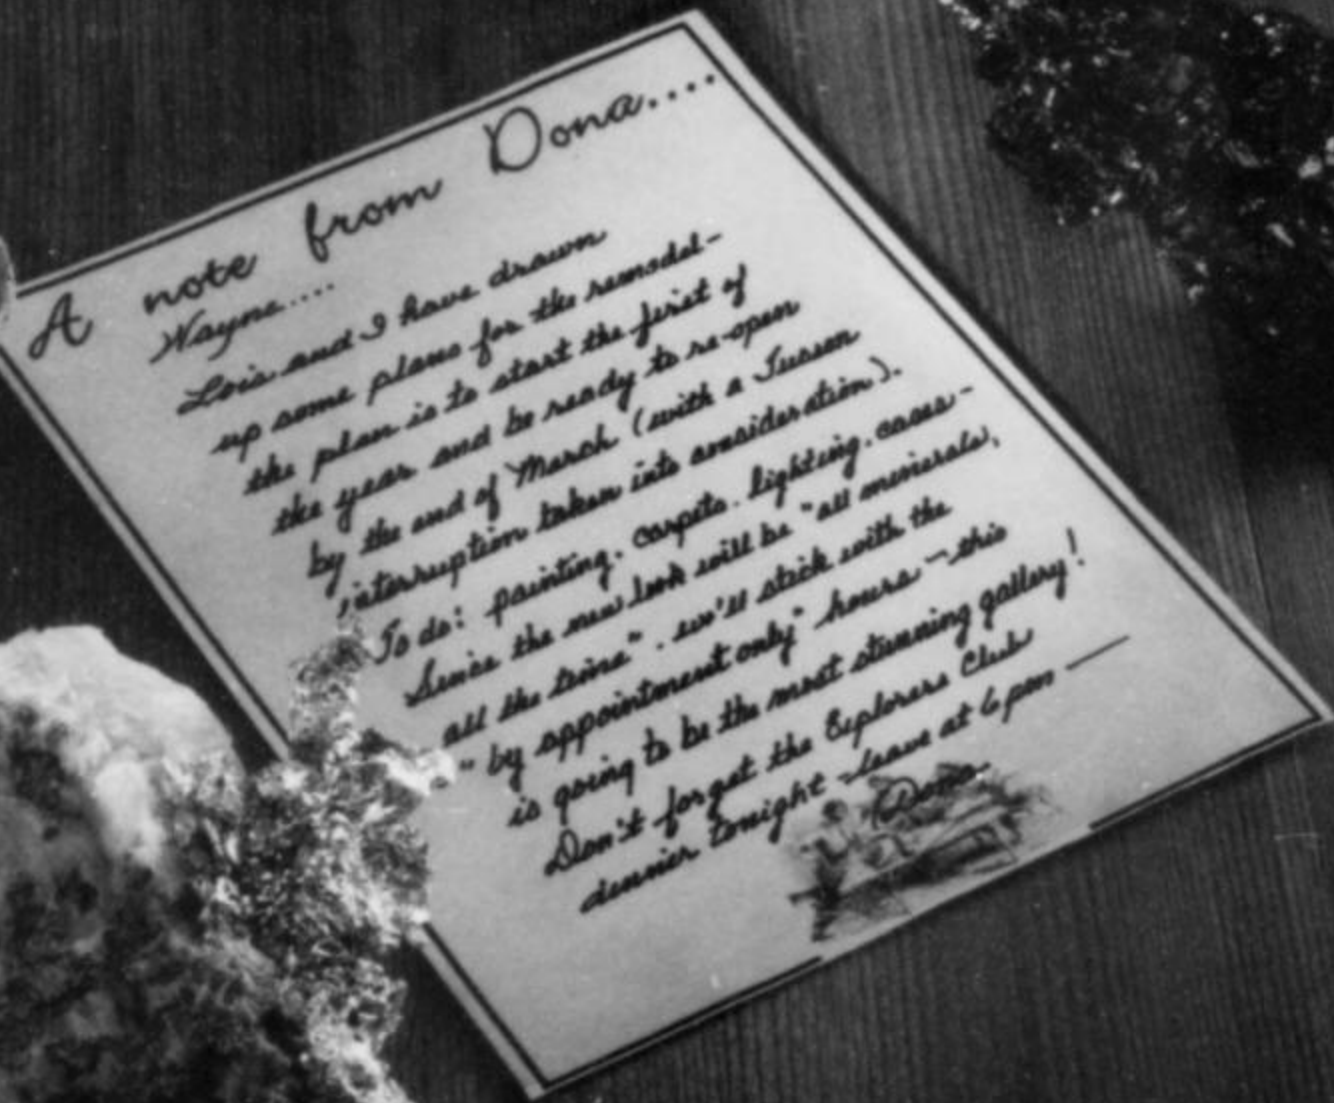 A note from Dona....
Wayne....
Lois and I have drawn
up some plans for the remodel-
the plan is to start the first of
the year and be ready to re-open
by the end of March (with a Tucson
interruption taken into consideration).
To do: painting, carpets, lighting, cases -
Since the new look will be "all minerals,
all the time", we'll stick with the
"by appointment only" hours - this
is going to be the most stunning gallery!
Don't forget the Explorers Club
dinner tonight - leave at 6 pm —
Dona